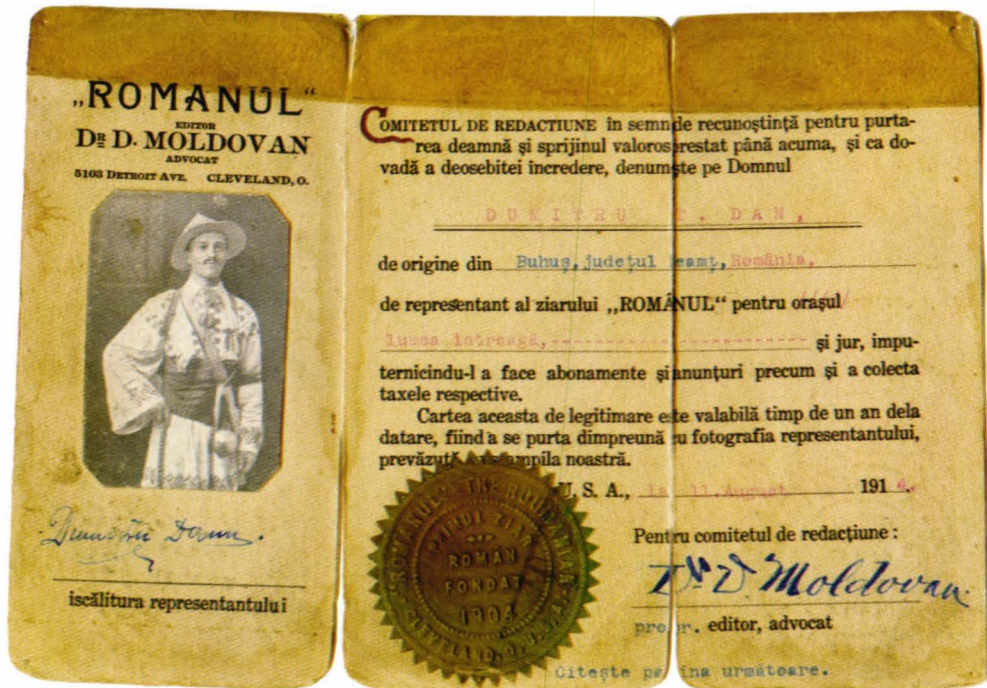 „ROMANUL“
EDITOR
DR D. MOLDOVAN
ADVOCAT
5103 DETROIT AVE. CLEVELAND, O.
Dumitru Dann.
iscălitura representantului
COMITETUL DE REDACTIUNE în semn de recunoștință pentru purta-
rea deamnă și sprijinul valoros prestat până acuma, și ca do-
vadă a deosebitei încredere, denumește pe Domnul
DUMITRU T. DAN,
de origine din Buhuș, județul Neamț, România,
de representant al ziarului „ROMÂNUL“ pentru orașul
lumea întreagă, și jur, impu-
ternicindu-l a face abonamente și anunțuri precum și a colecta
taxele respective.
Cartea aceasta de legitimare este valabilă timp de un an dela
datare, fiind a se purta dimpreună cu fotografia representantului,
prevăzută stampila noastră.
U. S. A., la 11 August 191
ROMAN
FONDAT
Pentru comitetul de redacțiune :
Dr D. Moldovan
editor, advocat
Citește pagina următoare.